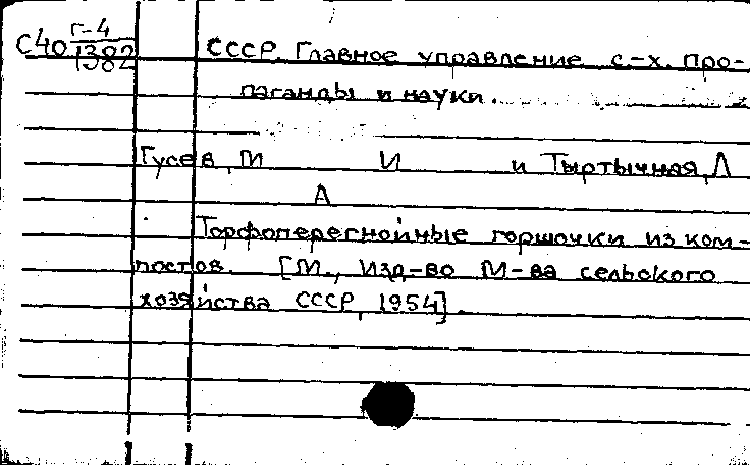 Г-4
С40 1382 СССР. Главное управление с-х. про-
1382
паганды и науки.
Гусев, М И и Тыртычная, Л
А
Торфоперегнойные горшочки из ком-
постов. [М., Изд-во М-ва сельского
хозяйства СССР, 1954].